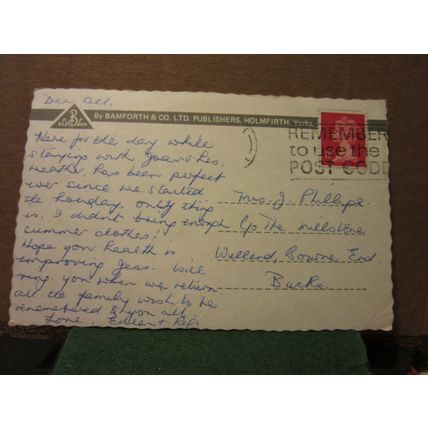 Dear All,
B
& Co Ltd
By BAMFORTH & CO. LTD. PUBLISHERS, HOLMFIRTH, Yorks.
Here for the day while
staying with Joan & Les.
Weather has been perfect
ever since we started
the holiday, only thing
is, I didn't bring enough
summer clothes!
Hope your health is
improving Jess. Will
ring you when we return
all the family wish to be
remembered to you all
Love Eileen &
REMEMBER
to use the
POST CODE
Mrs. J. Phillips
The Millstone
Bourne End
Bucks